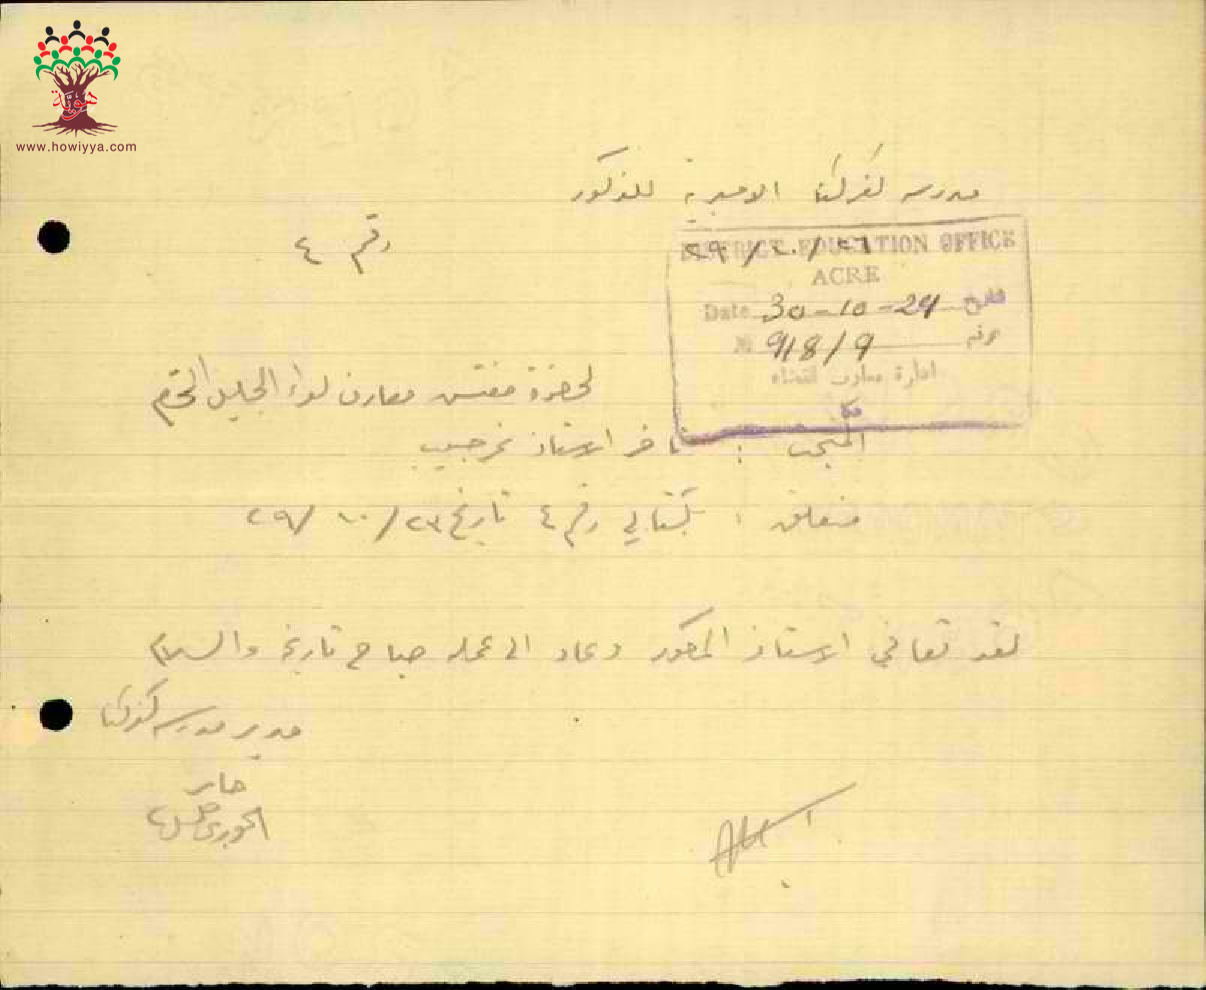 هوية
www.howiyya.com
مدرسه كفركنا الاميرية للذكور
رقم ٤
٢٩ / ١٠ /
DISTRICT EDUCATION OFFICE
ACRE
Date 30-10-29 تاريخ
№ 918/9 نمره
ادارة معارف قضاء
عكا
لحضرة مفتش معارف لواء الجليل المحترم
المبحث : تأخر الاستاذ
متعلق : بكتابي رقم ٤ تاريخ ٢٣ / ١٠ / ٢٩
لقد تعافى الاستاذ المذكور وعاد الى عمله صباح تاريخه والسلام
مدير مدرسه كفركنا
الخوري